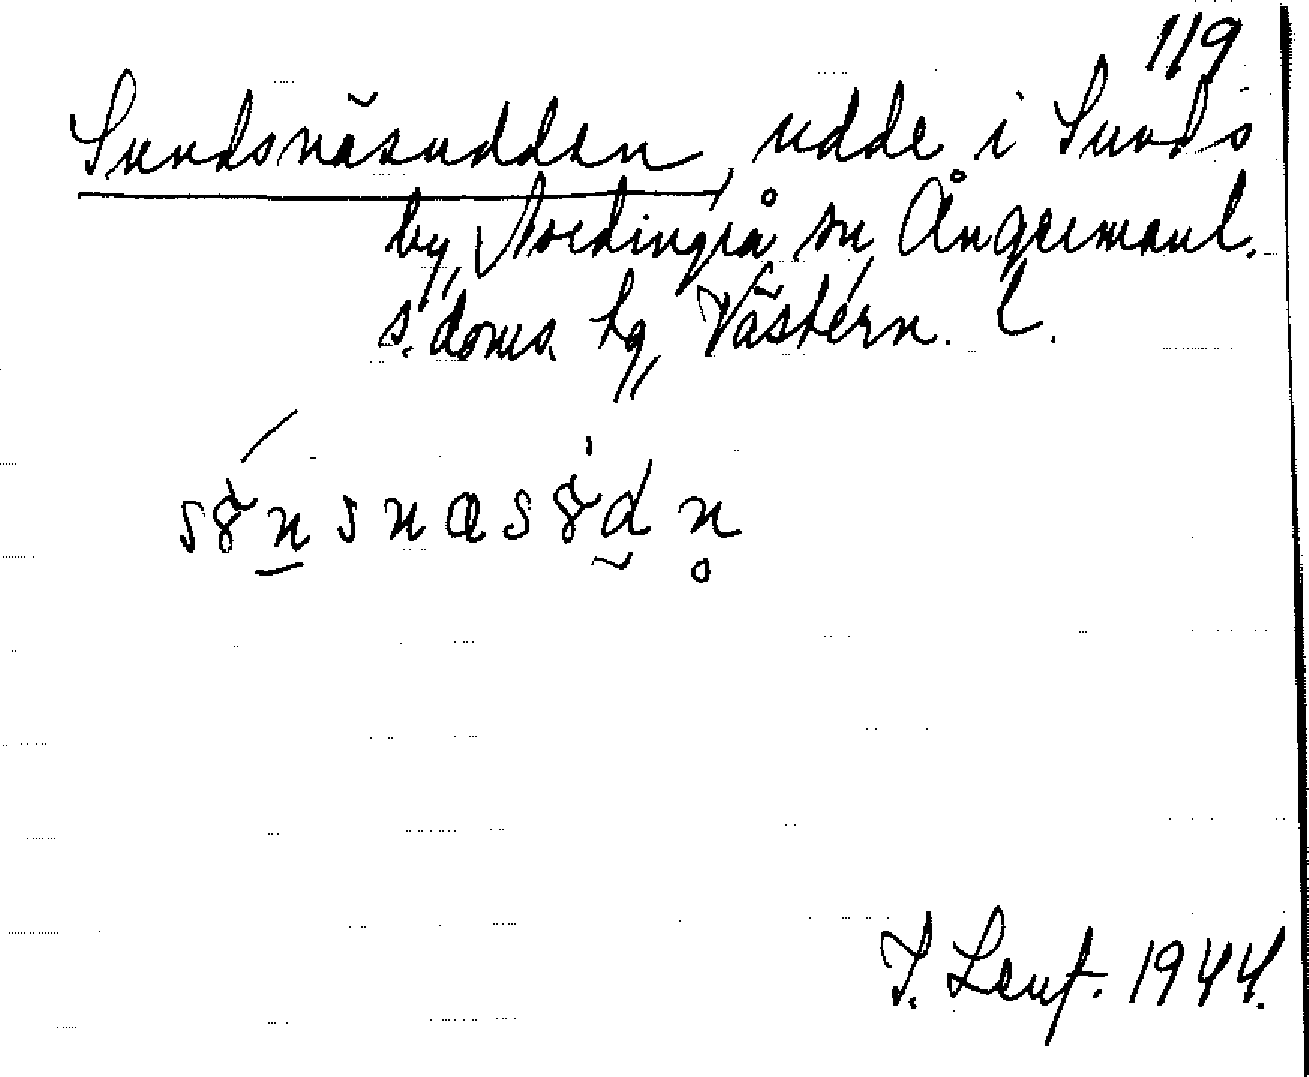 119
Sundsnäsudden, udde i Sunds
by, Nordingrå sn, Ångermanl.
s. doms. tg, Västern. l.
sɞ̀n̲snasɞ̀dn̥
I. Lenf. 1944.